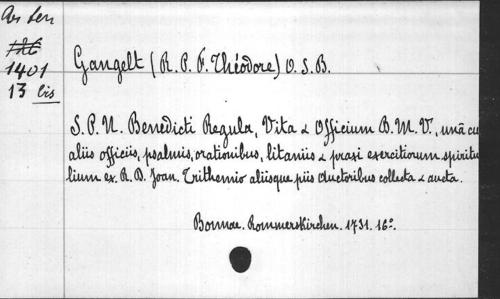 Gangelt (R. P. F. Théodore) O. S. B.
1401
13 bis
S. P. N. Benedicti Regula, Vita & Officium B. M. V., unâ cu
aliis officiis, psalmis, orationibus, litaniis & praxi exercitiorum spiritu
lium ex. R. D. Joan. Trithemio aliisque piis auctoribus collecta & aucta.
Bonnae. Rommerskirchen. 1731. 16º.